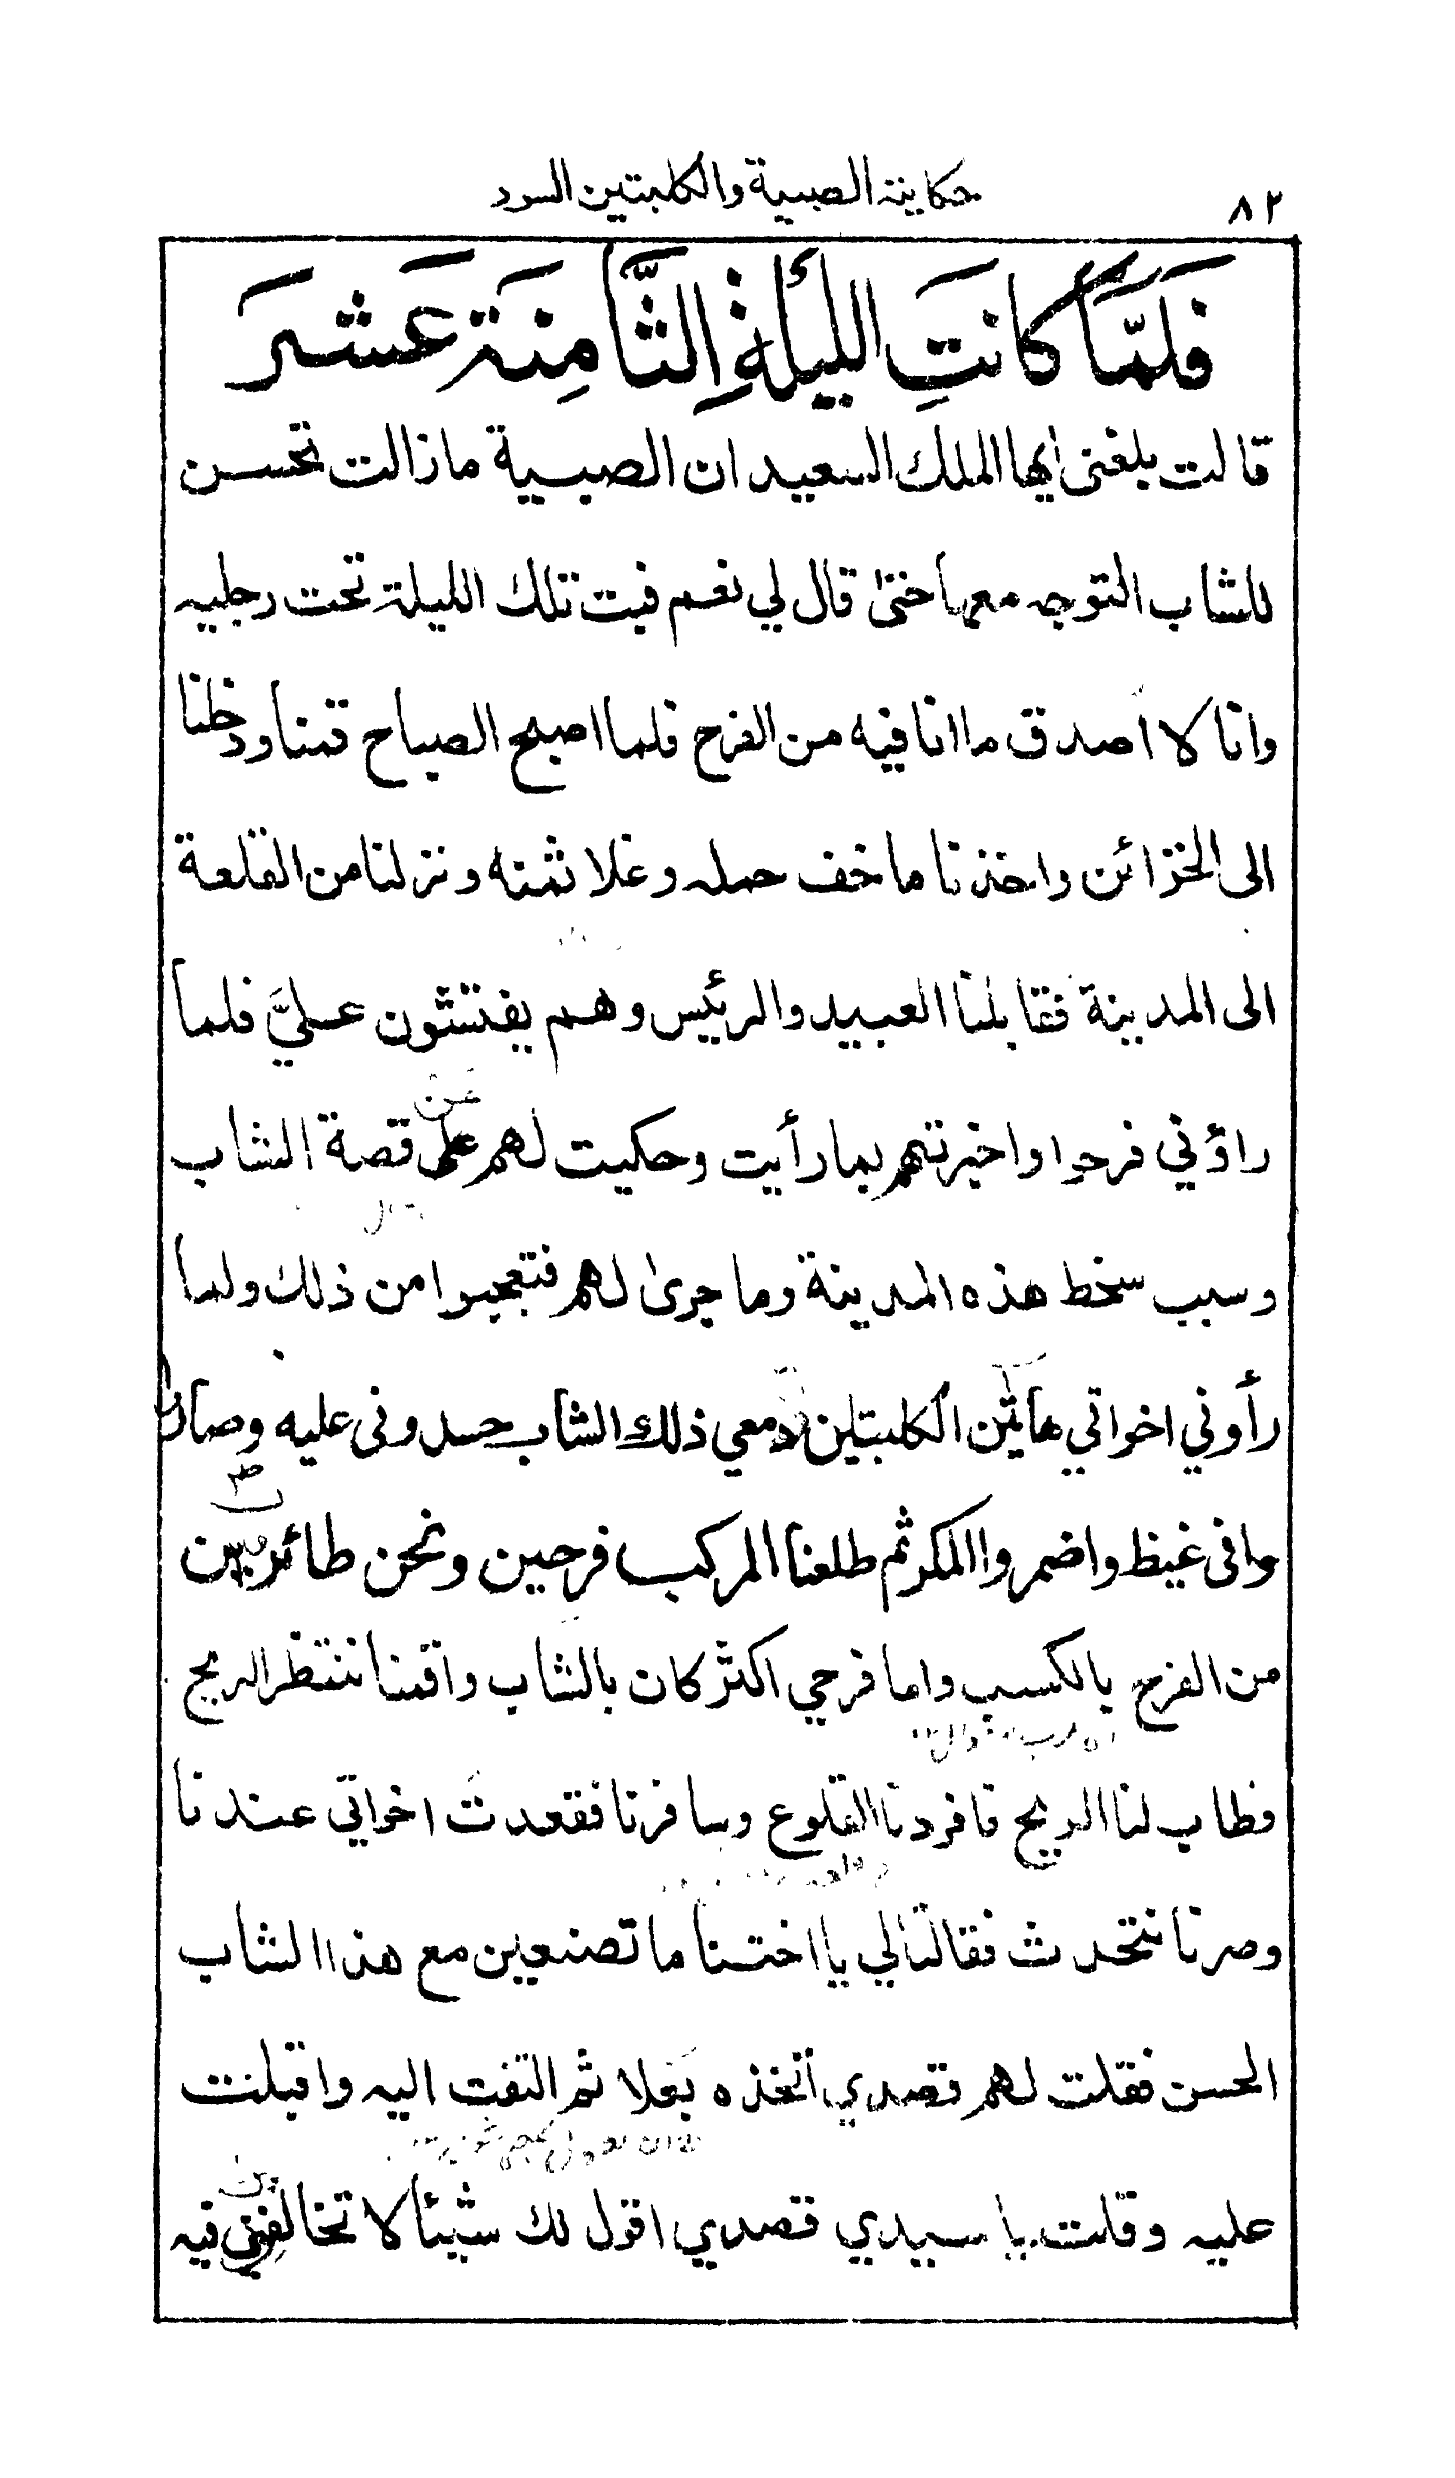 ٨٢
حكاية الصبية والكلبتين السود
فَلَمَّا كَانَتِ اللَّيْلَةُ الثَّامِنَة عَشَرَ
قالت بلغنى ايها الملك السعيد ان الصبية ما زالت تحسن
للشاب التوجه معها حتىٰ قال لي نعم فبت تلك الليلة تحت رجليه
وانا لا اصدق ما انا فيه من الفرح فلما اصبح الصباح قمنا ودخلنا
الى الخزائن واخذنا ما خف حمله وغلا ثمنه ونزلنا من القلعة
الى المدينة فقابلنا العبيد والرئيس وهم يفتشون عليَّ فلما
راؤني فرحوا واخبرتهم بما رأيت وحكيت لهم على قصة الشاب
وسبب سخط هذه المدينة وما جرىٰ لهم فتعجبوا من ذلك ولما
رأوني اخواتي هاتين الكلبتين ومعي ذلك الشاب حسدونى عليه وصارا
وافى غيظ واضمروا المكر ثم طلعنا المركب فرحين ونحن طائرين
من الفرح بالكسب واما فرحي اكثر كان بالشاب واقمنا ننتظر الريح
فطاب لنا الريح فافردنا القلوع وسافرنا فقعدت اخواتي عندنا
وصرنا نتحدث فقالتا لي يا اختنا ما تصنعين مع هذا الشاب
الحسن فقلت لهم قصدي أتخذه بعلا ثم التفت اليه واقبلت
عليه وقلت يا سيدي قصدي اقول لك شيئا لا تخالفني فيه